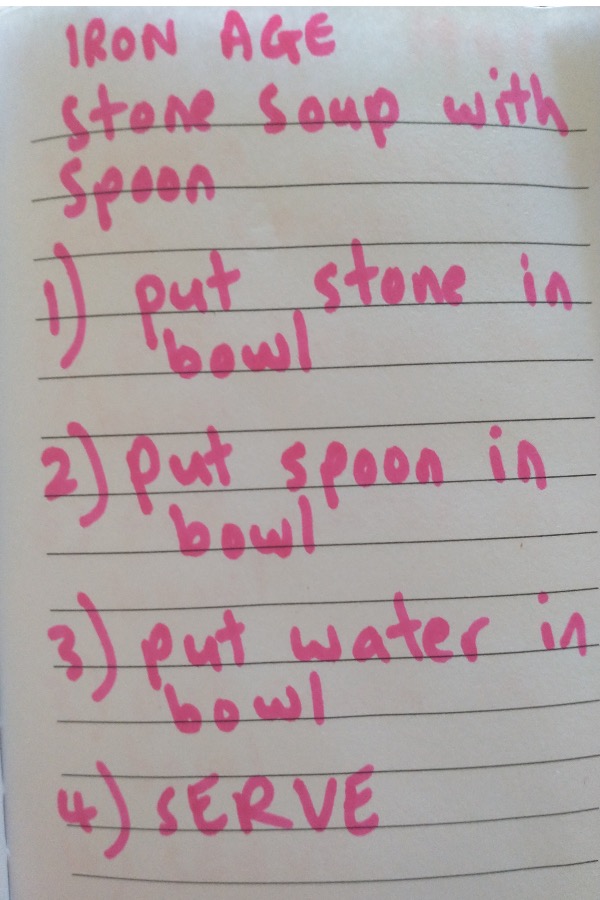 IRON AGE
stone soup with
spoon
1) put stone in
bowl
2) put spoon in
bowl
3) put water in
bowl
4) SERVE